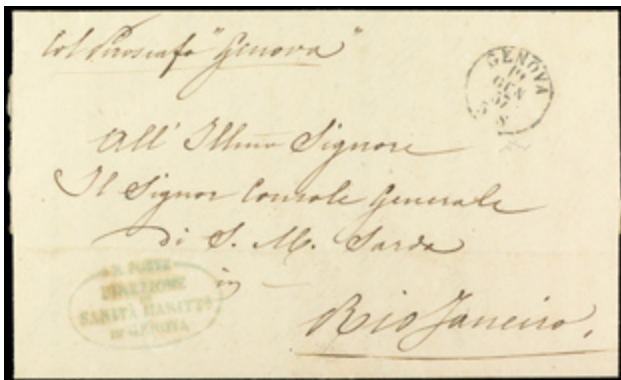 Col Piroscafo "Genova"
GENOVA
10
GEN
57
All' Illmo Signore
Il Signor Console Generale
di S. M. Sarda
in
Rio Janeiro.
R. POSTE
DIREZIONE
DI
SANITÀ MARITTA
DI GENOVA